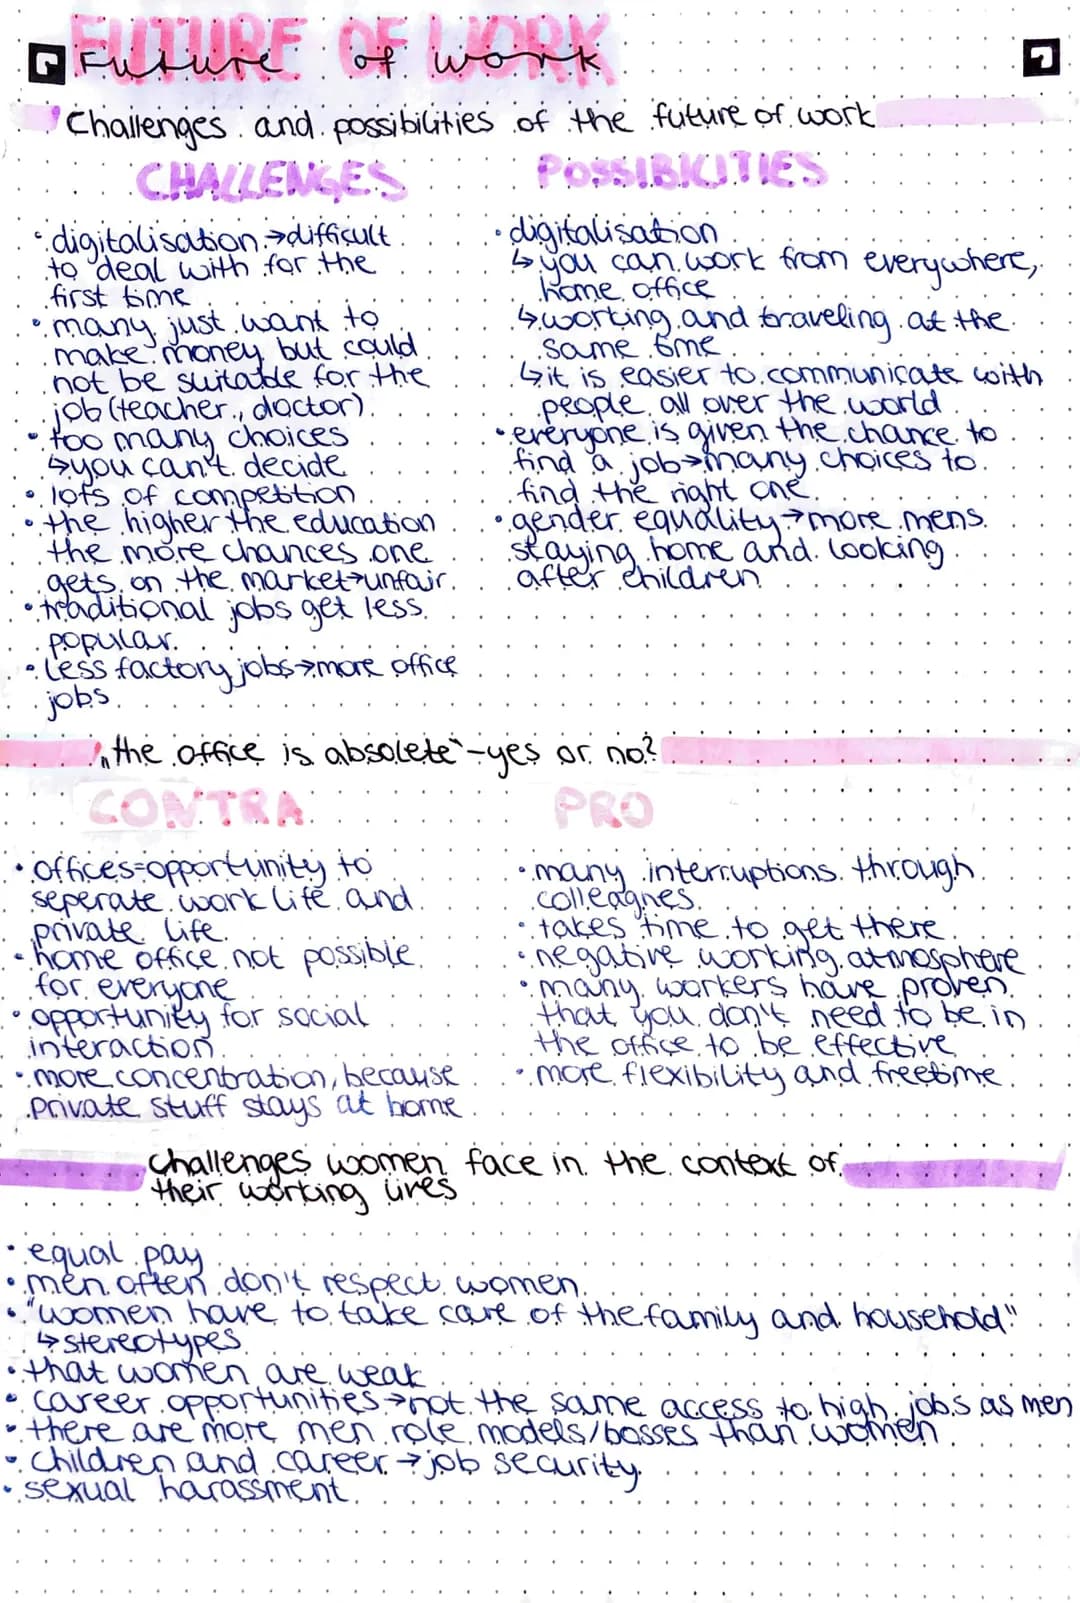 FUTURE OF WORK
Future of work
Challenges and possibilities of the future of work
CHALLENGES
• digitalisation → difficult
to deal with for the
first time
• many just want to
make money but could
not be suitable for the
job (teacher, doctor)
• too many choices
↳ you can't decide
• lots of competition
• the higher the education
the more chances one
gets on the market → unfair
• traditional jobs get less
popular
• less factory jobs → more office
jobs
POSSIBILITIES
• digitalisation
↳ you can work from everywhere,
home office
↳ working and traveling at the
same time
↳ it is easier to communicate with
people all over the world
• everyone is given the chance to
find a job → many choices to
find the right one
• gender equality → more mens
staying home and looking
after children
„the office is absolete“ - yes or no?
CONTRA
• offices = opportunity to
seperate work life and
private life
• home office not possible
for everyone
• opportunity for social
interaction
• more concentration, because
private stuff stays at home
PRO
• many interruptions through
colleagnes
• takes time to get there
• negative working atmosphere
• many workers have proven
that you don't need to be in
the office to be effective
• more flexibility and freetime
Challenges women face in the context of
their working lives
• equal pay
• men often don't respect women
• "women have to take care of the family and household"
↳ stereotypes
• that women are weak
• career opportunities → not the same access to high jobs as men
• there are more men role models/bosses than women
• children and career → job security
• sexual harassment